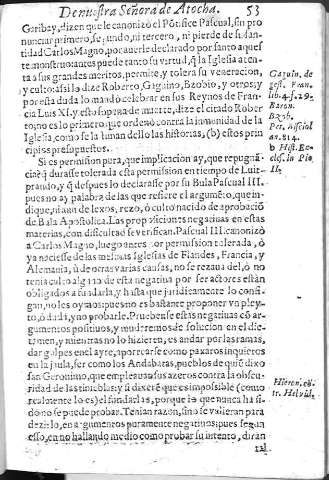 De nuestra Señora de Atocha. 53
Garibay, dizen que le canonizó el Põtifice Pascual, sin pro
nunciar primero, segundo, ni tercero, ni pierde de su san-
tidad Carlos Magno, por auerle declarado por santo aquel
te monstruo: antes puede tanto su virtud, q̃ la Iglesia aten
ta a sus grandes meritos, permite, y tolera su veneracion,
y culto: assi lo dize Roberto, Gaguino, Bzobio, y otros; y
por esta duda lo mandó celebrar en sus Reynos de Fran-
cia Luis XI. y esto supara de muerte, dize el citado Rober
to; no es lo primero que ordenó contra la inmunidad de la
Iglesia, como se la
las historias, (b) estos prin
cipios presupuestos.
Si es permission pura, que implicacion ay, que repugnã
cia q̃ durasse tolerada esta permission en tiempo de Luit-
prando, y q̃ despues lo declarasse por su Bula Pascual III.
pues no ay palabra de las que refiere el argumẽto, que in-
dique, ni aun de lexos, rezo, ó culto nacido de aprobació
de Bula Apostolica. Las proposiciones negatiuas en estas
materias, con dificultad se verifican. Pascual III. canonizó
a Carlos Magno, luego antes por permission tolerada, ó
ya naciesse de las mesmas Iglesias de Flandes, Francia, y
Alemania, ú de otras varias causas, no se rezaua del, ó no
tenia culto alguno de esta negatiua por ser actores están
obligados a su darla, y hasta que juridicamente lo consi-
gan, no les oymos; pues no es bastante proponer vn pley-
to, ó duda, y no probarle. Pruebense estas negatiuas cõ ar-
gumentos positiuos, y mudaremos de solucion en el dic-
tamen, y mientras no lo hizieren, es andar por las ramas,
dar golpes en el ayre, aporrearse como paxaros inquietos
en la jaula, ser como los Andabatas, pueblos de quiẽ dixo
san Geronimo, que emplean sus azeros contra la obscu-
ridad de las tinieblas; y si dixere que es impossible (como
realmente lo es) el fundarlas, porque lo que nunca ha si-
do no se puede probar. Tenian razon, sino se valieran para
dezirlo, en argumentos puramente negatiuos: pues segun
esso, en no hallando medio como probar su intento, diran
Gaguin. de
gest. Fran.
lib. 4. f. 29.
Baron.
Bzob.
an. 814.
b Hist. Ec-
cles. in Pio
II.
Hieron. cõ-
tr. Helvid.